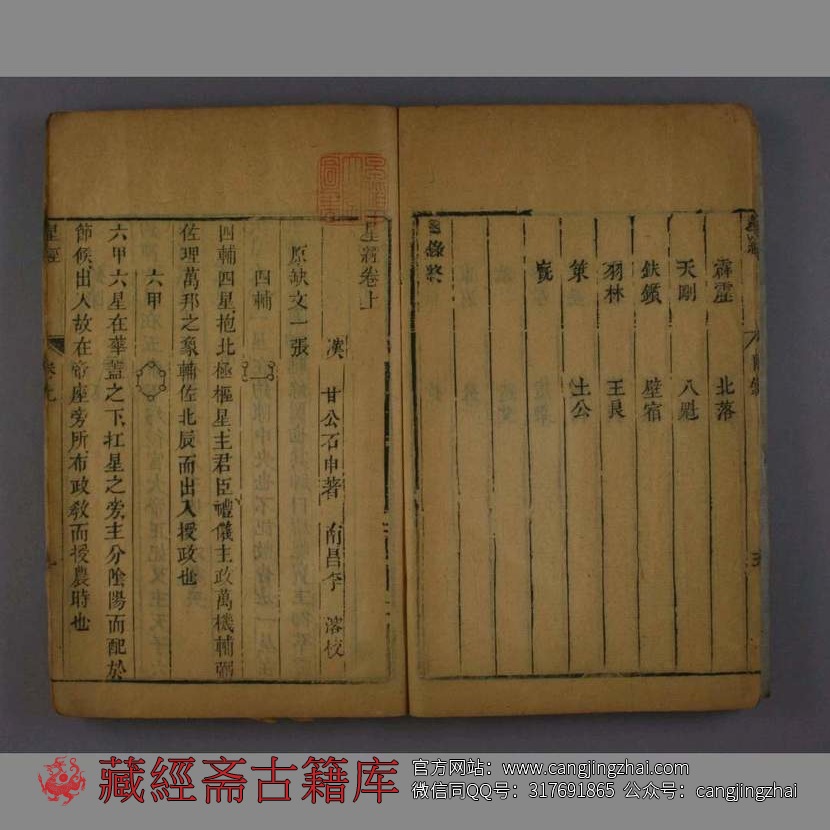 霹靂 北落
天剛 八魁
鈇鑕 壁宿
羽林 王良
策 土公
目錄終
星經卷上
漢 甘公石申著 南昌李 校
原缺文一張
四輔
四輔四星抱北極樞星主君臣禮儀主政萬機輔弼
佐理萬邦之象輔佐北辰而出入授政也
六甲
六甲六星在華蓋之下杠星之旁主分陰陽而配於
節候出入故在帝座旁所布政敎而授農時也
星經
藏經斋古籍库
官方网站：www.cangjingzhai.com
微信同QQ号：317691865 公众号：cangjingzhai